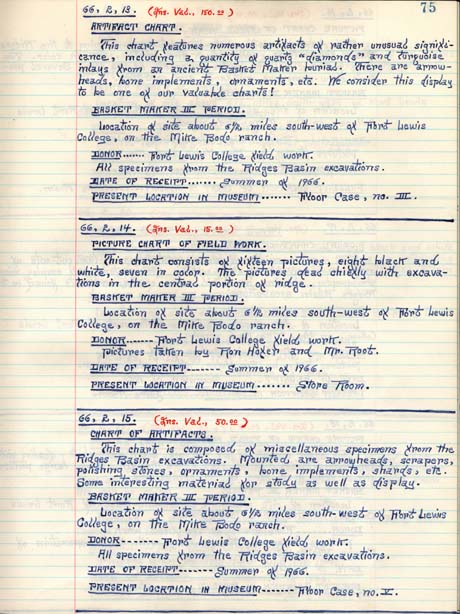 75
66, 2, 13. (Ins. Val., 150.00)
ARTIFACT CHART.
This chart features numerous artifacts of rather unusual signifi-
cance, including a quantity of quartz "diamonds" and turquoise
inlays from an ancient Basket Maker burial. There are arrow-
heads, bone implements, ornaments, etc. We consider this display
to be one of our valuable charts!
BASKET MAKER III PERIOD.
Location of site about 6½ miles south-west of Fort Lewis
College, on the Mike Bodo ranch.
DONOR...... Fort Lewis College field work.
All specimens from the Ridges Basin excavations.
DATE OF RECEIPT....... Summer of 1966.
PRESENT LOCATION IN MUSEUM....... Floor Case, no. III.
66, 2, 14. (Ins. Val., 15.00)
PICTURE CHART OF FIELD WORK.
This chart consists of sixteen pictures, eight black and
white, seven in color. The pictures deal chiefly with excava-
tions in the central portion of ridge.
BASKET MAKER III PERIOD.
Location of site about 6½ miles south-west of Fort Lewis
College, on the Mike Bodo ranch.
DONOR------- Fort Lewis College field work.
Pictures taken by Ron Hoker and Mr. Root.
DATE OF RECEIPT------- Summer of 1966.
PRESENT LOCATION IN MUSEUM....... Store Room.
66, 2, 15. (Ins. Val., 50.00)
CHART OF ARTIFACTS.
This chart is composed of miscellaneous specimens from the
Ridges Basin excavations. Mounted are arrowheads, scrapors,
polishing stones, ornaments, bone implements, shards, etc.
Some interesting material for study as well as display.
BASKET MAKER III PERIOD.
Location of site about 6½ miles south-west of Fort Lewis
College, on the Mike Bodo ranch.
DONOR-------- Fort Lewis College field work.
All specimens from the Ridges Basin excavations.
DATE OF RECEIPT------- Summer of 1966.
PRESENT LOCATION IN MUSEUM------ Floor Case, no. V.